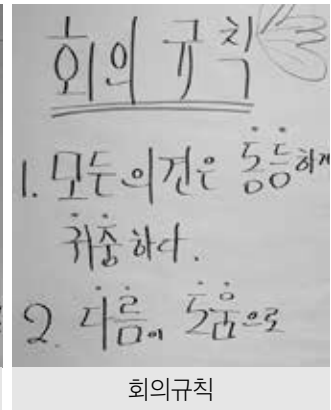 회의 규칙
1. 모든 의견은 동등하게
귀중하다.
2. 다름이 도움으로
회의규칙